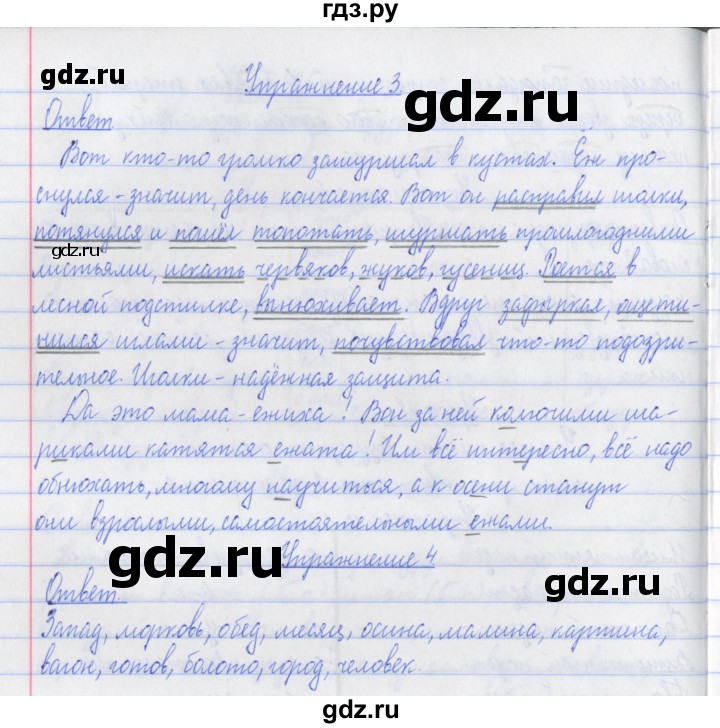 гдз.ру
gdz.ru
gdz.ru
Упражнение 3
Ответ
Вот кто-то громко зашуршал в кустах. Ёж про-
снулся - значит, день кончается. Вот он расправил иголки,
потянулся и пошёл топотать, шуршать прошлогодними
gdz.ru
листьями, искать червяков, жуков, гусениц. Роется в
лесной подстилке, вынюхивает. Вдруг задыркал, ощети-
нился иглами - значит, почувствовал что-то подозри-
тельное. Иголки - надёжная защита.
Да это мама - ежиха! Вон за ней колючими ша-
риками катятся ежата! Им всё интересно, всё надо
обнюхать, многому научиться, а к осени станут
они взрослыми, самостоятельными ежами.
gdz.ru
gdz.ru
Упражнение 4
Ответ.
Запад, морковь, обед, месяц, осина, малина, картина,
вагон, готов, болото, город, человек.
gdz.ru